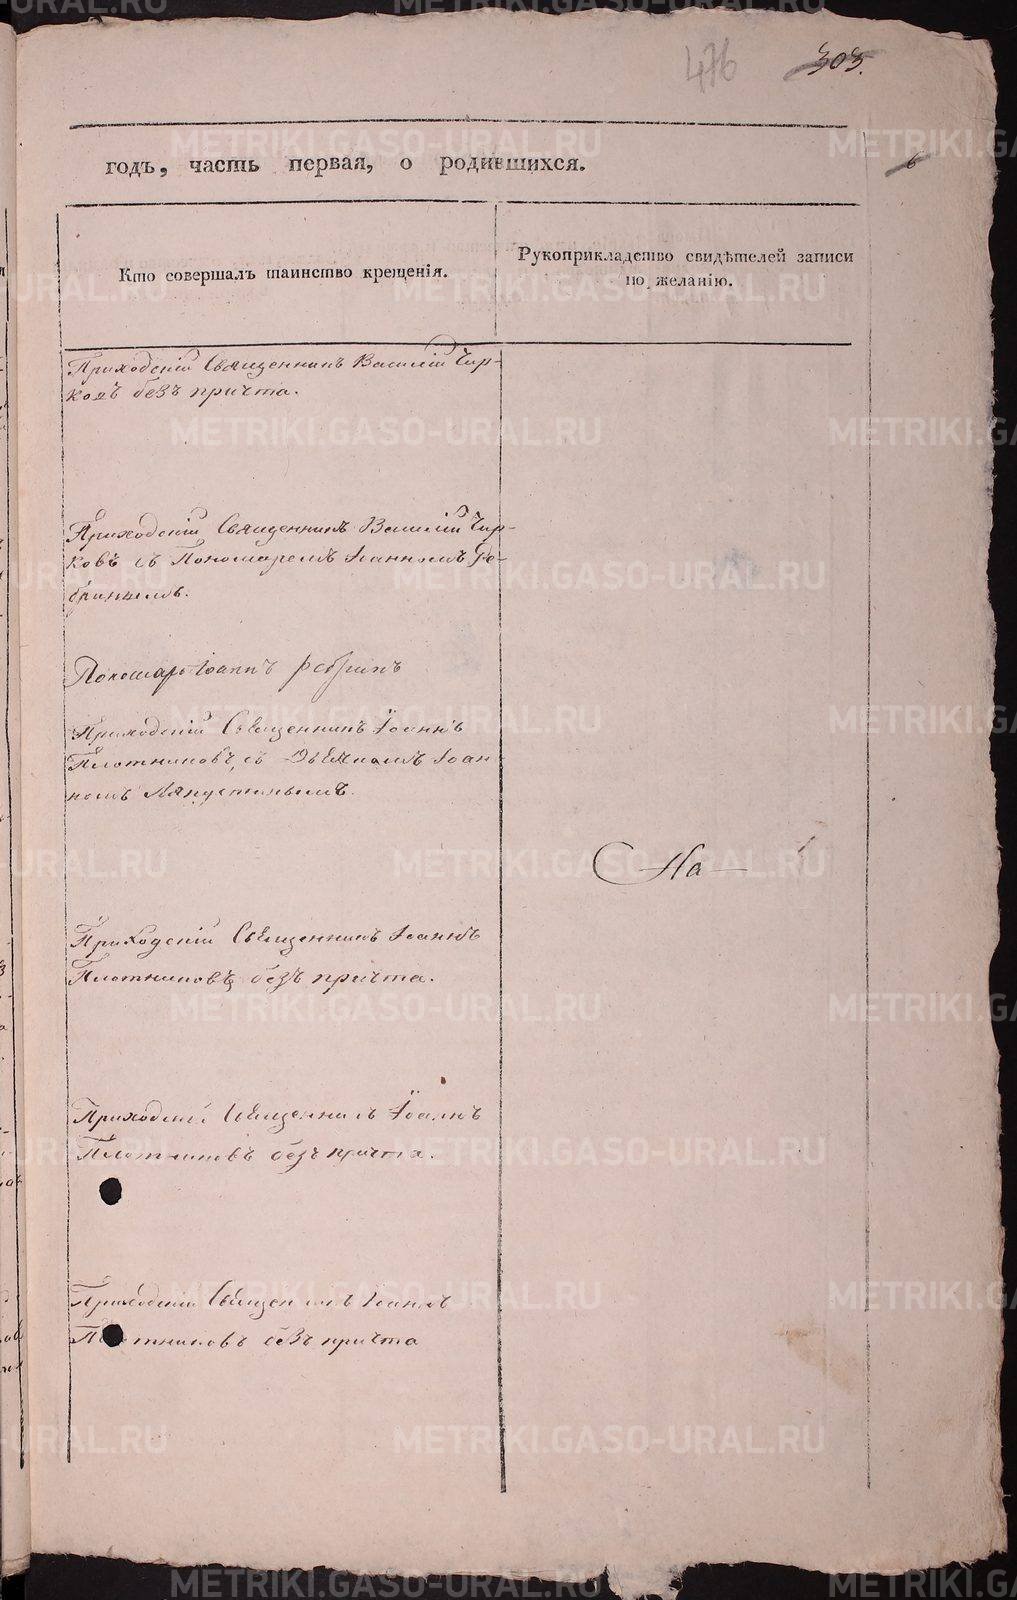 476 303.
годъ, часть первая, о родившихся.
6
Кто совершалъ таинство крещенія.
Рукоприкладство свидѣтелей записи
по желанію.
Приходскій Священникъ Василій Чир-
ковъ безъ причта.
Приходскій Священникъ Василій Чир-
ковъ съ Пономаремъ Іоанномъ Ре-
бринымъ.
Пономарь Іоаннъ Ребринъ
Приходскій Священникъ Іоаннъ
Плотниковъ, съ Діакономъ Іоан-
номъ
На
Приходскій Священникъ Іоаннъ
Плотниковъ безъ причта.
Приходскій Священникъ Іоаннъ
Плотниковъ безъ причта.
Приходскій Священникъ Іоаннъ
Плотниковъ безъ причта
METRIKI.GASO-URAL.RU